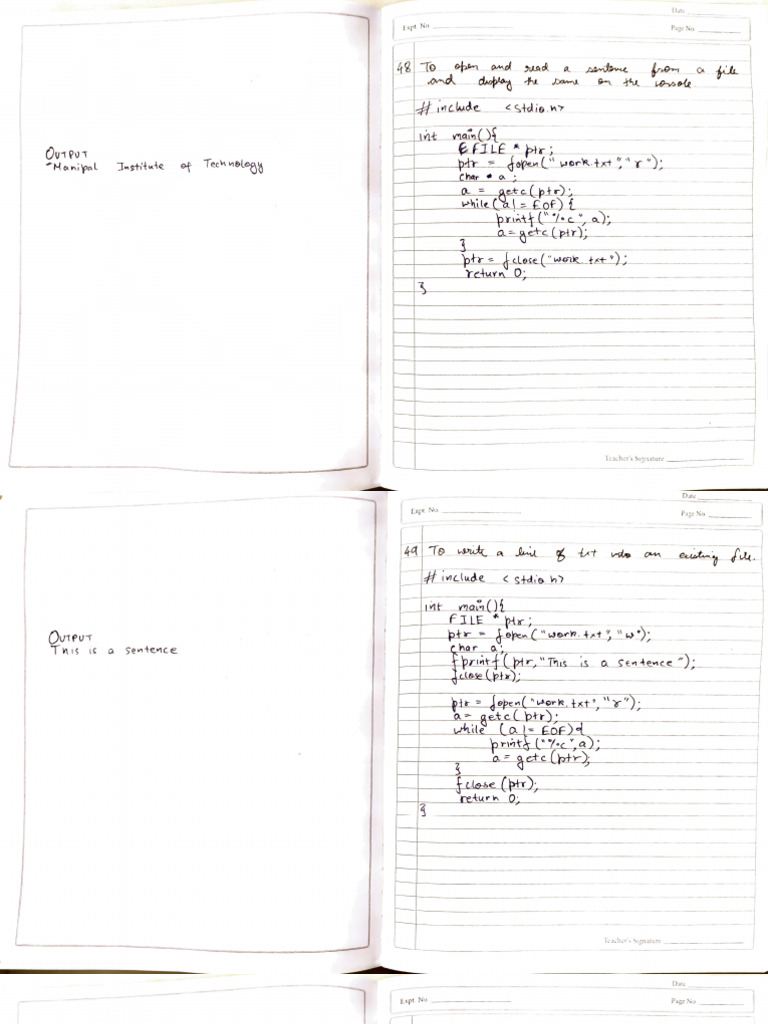 OUTPUT
Manipal Institute of Technology
Date
Expt. No.
Page No.
48 To open and read a sentence from a file
and display the same on the console
# include <stdio.h>
int main(){
FILE * ptr;
ptr = fopen("work.txt","r");
char * a;
a = getc(ptr);
while(a!= EOF) {
printf("%c", a);
a=getc(ptr);
}
ptr = fclose("work.txt");
return 0;
}
Teacher's Signature
OUTPUT
This is a sentence
Date
Expt. No.
Page No.
49 To write a line of txt into an existing file.
# include <stdio.h>
int main(){
FILE * ptr;
ptr = fopen("work.txt", "w");
char a;
fprintf(ptr,"This is a sentence");
fclose(ptr);
ptr = fopen("work.txt", "r");
a = getc(ptr);
while (a!= EOF){
printf("%c",a);
a = getc(ptr);
}
fclose(ptr);
return 0;
}
Teacher's Signature
Date
Expt. No.
Page No.